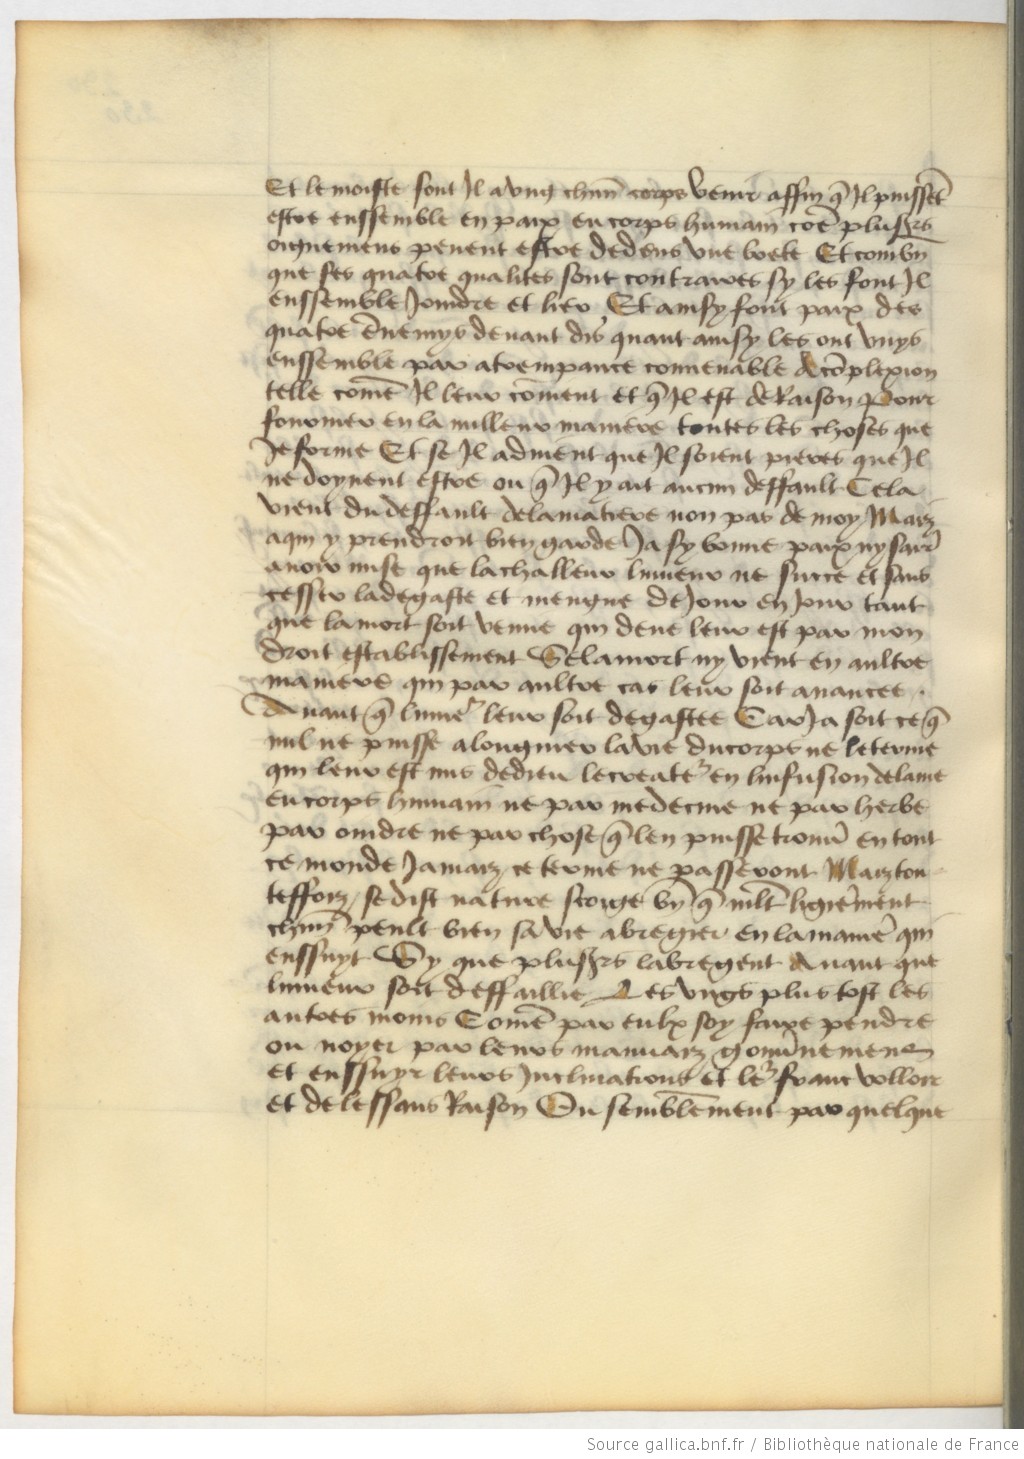 Et le moiste font Il a vng chũn corps venir affin q̃ Il puissẽt
estre enssemble en paix en corps humain cõe plus̃rs
oignemens peuent estre dedens vne boete Et combñ
que ses quatre qualites sont contraires sy les font Il
enssemble Joindre et lier Et ainsy font paix des
quatre ẽnemys deuant dis quant ainsy les ont vnys
enssemble par atrempance conuenable A cõplexion
telle comẽ Il leur cõuient et q̃ Il est de Raison Pour
fourmer en la milleur maniere toutes les choses que
Je forme Et se Il aduient que Il soient pieres que Il
ne doyuent estre ou q̃ Il y ait aucun deffault Cela
vient du deffault de la matiere non pas de moy Maiz
a qui y prendroit bien garde Ja sy bonne paix ny sarr̃
auoir mise que la challeur lumeur ne succe et sans
cesser la degaste et mengue de Jour en Jour tant
que la mort soit venue qui deue leur est par mon
droit establissement Se la mort ny vient en aultre
maniere qui par aultre cas leur soit auancee .
Auant q̃ lumer̃ leur soit degastee Car Ja soit ce q̃
nul ne puisse alongnier la vie du corps ne le terme
qui leur est mis de dieu le creater̃ en linfusion de lame
en corps humain ne par medecine ne par herbe
par oindre ne par chose q̃ len puisse trouũ en tout
ce monde Jamaiz ce terme ne passeront Maiz tou
teffoiz se dist nature scoige bñ q̃ mlt̃ ligierẽment
chũn peult bien sa vie abregier en la manier̃ qui
enssuyt Sy que plus̃rs labregent Auant que
lumeur soit deffaillie Les vngs plus tost les
autres moins Comẽ par eulx soy faire pendre
ou noyer par leurs mauuaiz gouũnemens
et enssuyr leurs Inclinations et ler̃ franc volloir
et delessans Raison Ou semblẽment par quelque
Source gallica.bnf.fr / Bibliothèque nationale de France